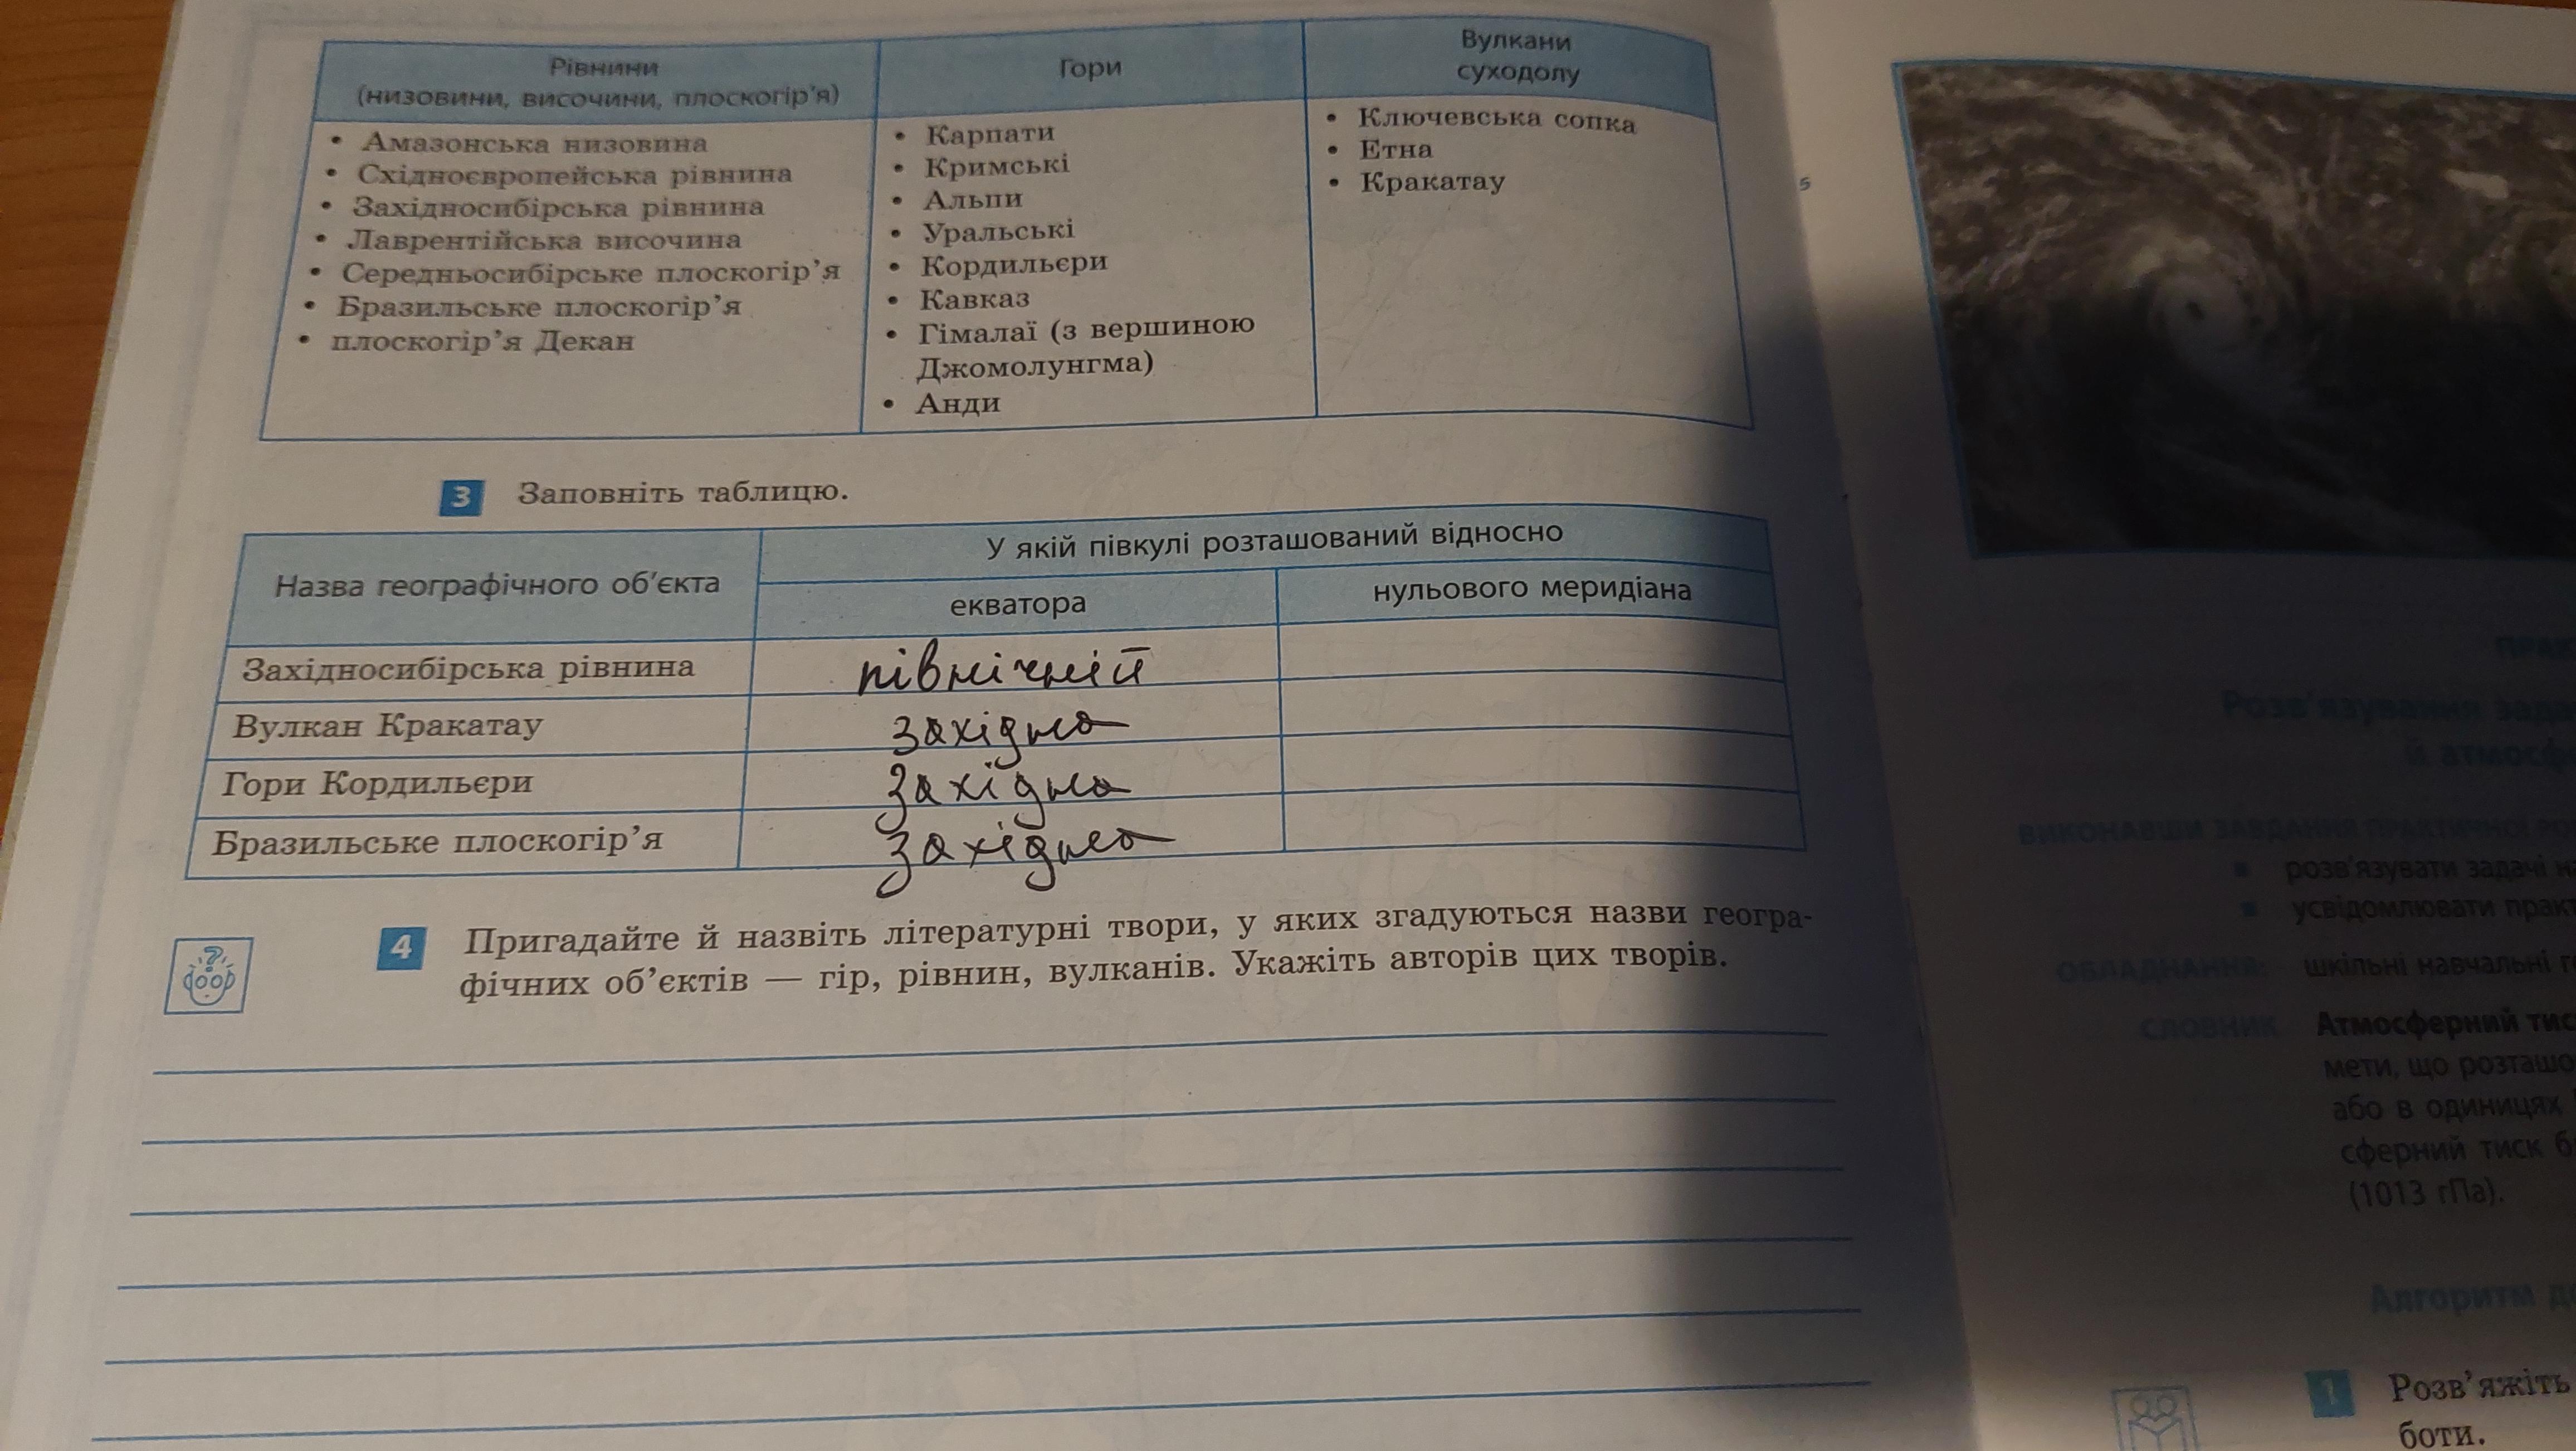 Рівнини
(низовини, височини, плоскогір’я)
Гори
Вулкани
суходолу
• Амазонська низовина
• Східноєвропейська рівнина
• Західносибірська рівнина
• Лаврентійська височина
• Середньосибірське плоскогір’я
• Бразильське плоскогір’я
• плоскогір’я Декан
• Карпати
• Кримські
• Альпи
• Уральські
• Кордильєри
• Кавказ
• Гімалаї (з вершиною
Джомолунгма)
• Анди
• Ключевська сопка
• Етна
• Кракатау
3 Заповніть таблицю.
Назва географічного об’єкта
У якій півкулі розташований відносно
екватора
нульового меридіана
Західносибірська рівнина північній
Вулкан Кракатау західна
Гори Кордильєри західна
Бразильське плоскогір’я західна
4 Пригадайте й назвіть літературні твори, у яких згадуються назви геогра-
фічних об’єктів — гір, рівнин, вулканів. Укажіть авторів цих творів.
5
Розв’язування зада
й атмосф
ВИКОНАВШИ ЗАВДАННЯ ПРАКТИЧНОЇ РО
розв’язувати задачі н
усвідомлювати практ
ОБЛАДНАННЯ: шкільні навчальні г
СЛОВНИК Атмосферний тис
мети, що розташо
або в одиницях
сферний тиск б
(1013 гПа).
Алгоритм д
1 Розв’яжіть
боти.